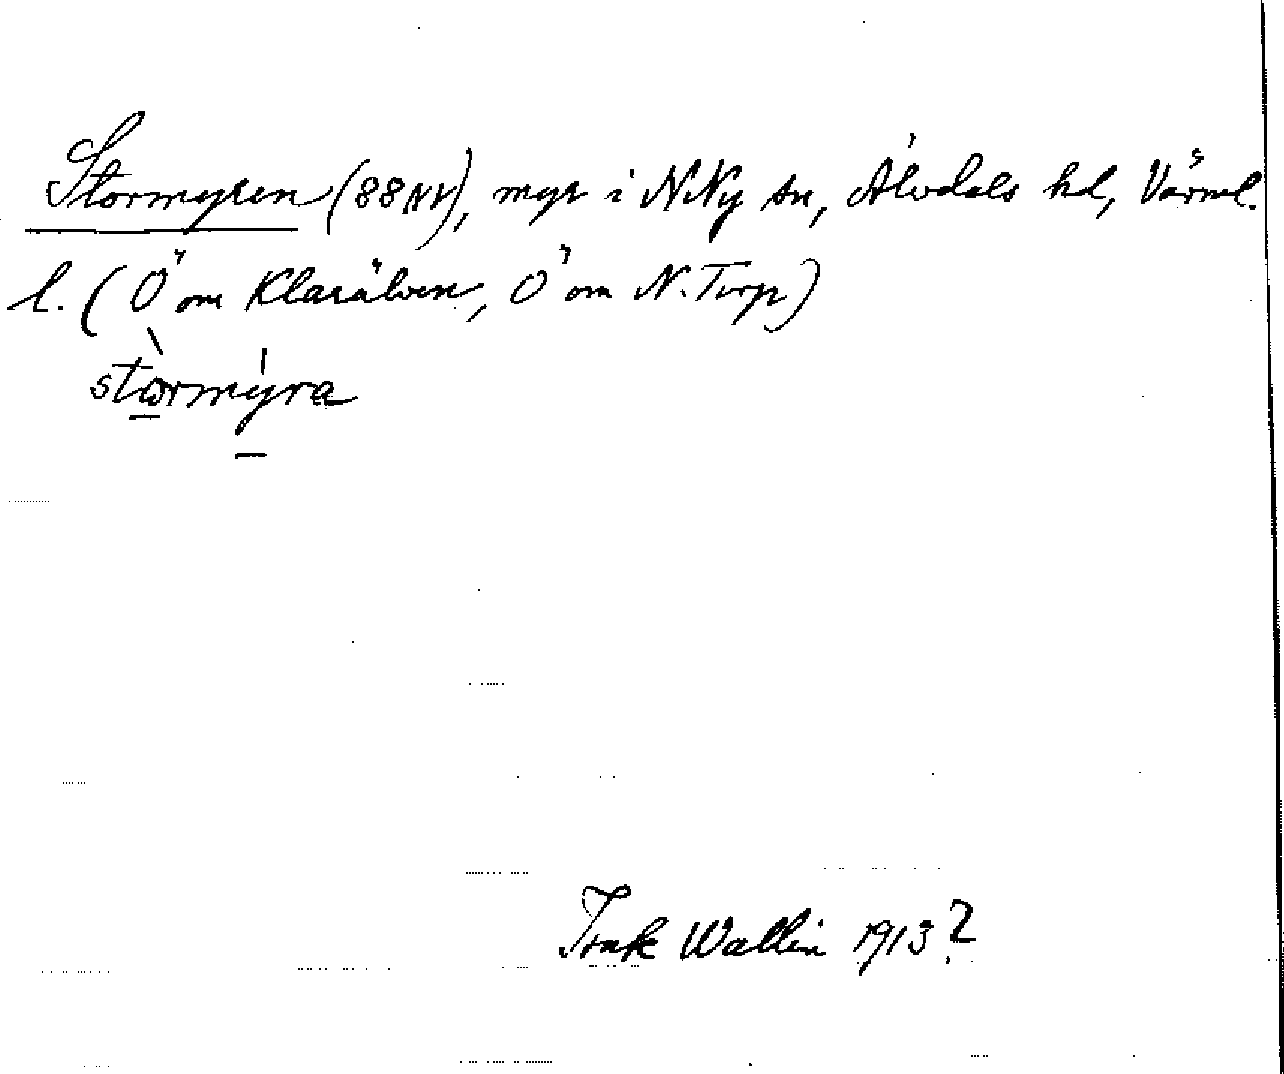 Stormyren (88NV), myr i N Ny sn, Älvdals hd, Värml.
l. (Ö om Klarälven, Ö om N. Torp)
stòrmýra
Isak Wallin 1913?